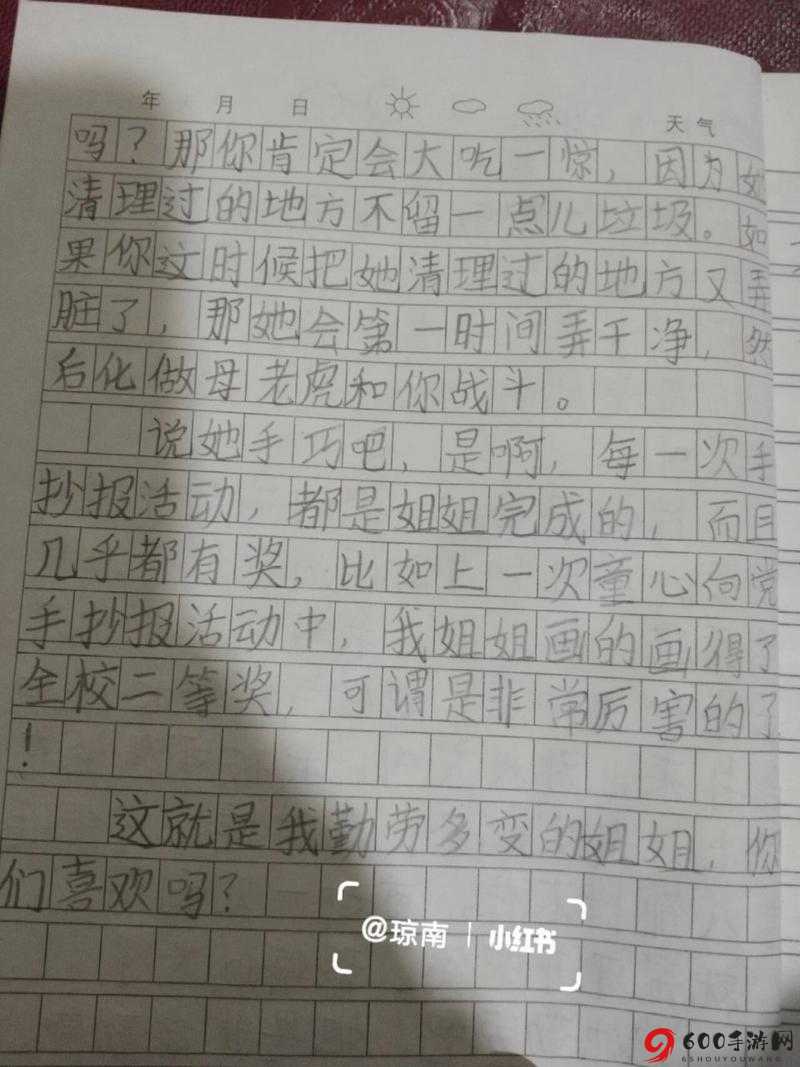 年 月 日 天气
吗？那你肯定会大吃一惊，因为她
清理过的地方不留一点儿垃圾。如
果你这时候把她清理过的地方又弄
脏了，那她会第一时间弄干净，然
后化做母老虎和你战斗。
说她手巧吧，是啊，每一次手
抄报活动，都是姐姐完成的，而且
几乎都有奖，比如上一次童心向党
手抄报活动中，我姐姐画的画得了
全校二等奖，可谓是非常厉害的了
！
这就是我勤劳多变的姐姐，你
们喜欢吗？
@琼南 | 小红书
600手游网
6SHOUYOUWANG